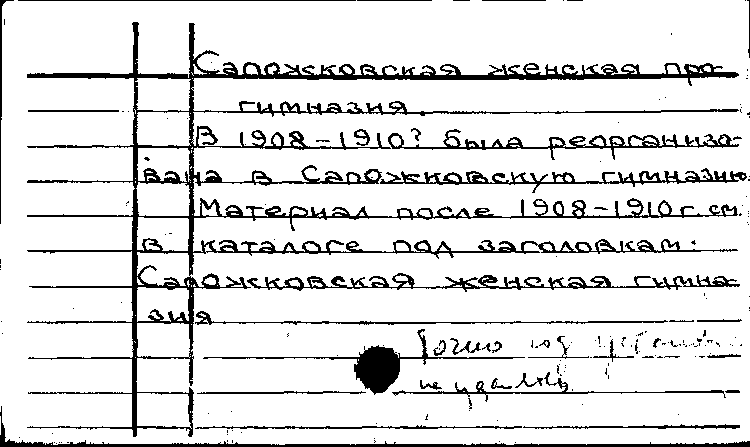 Сапожковская женская про-
гимназия.
В 1908-1910? была реорганизо-
вана в Сапожковскую гимназию.
Материал после 1908-1910 г. см.
в каталоге под заголовкам:
Сапожковская женская гимна-
зия
Точно год
не удалось